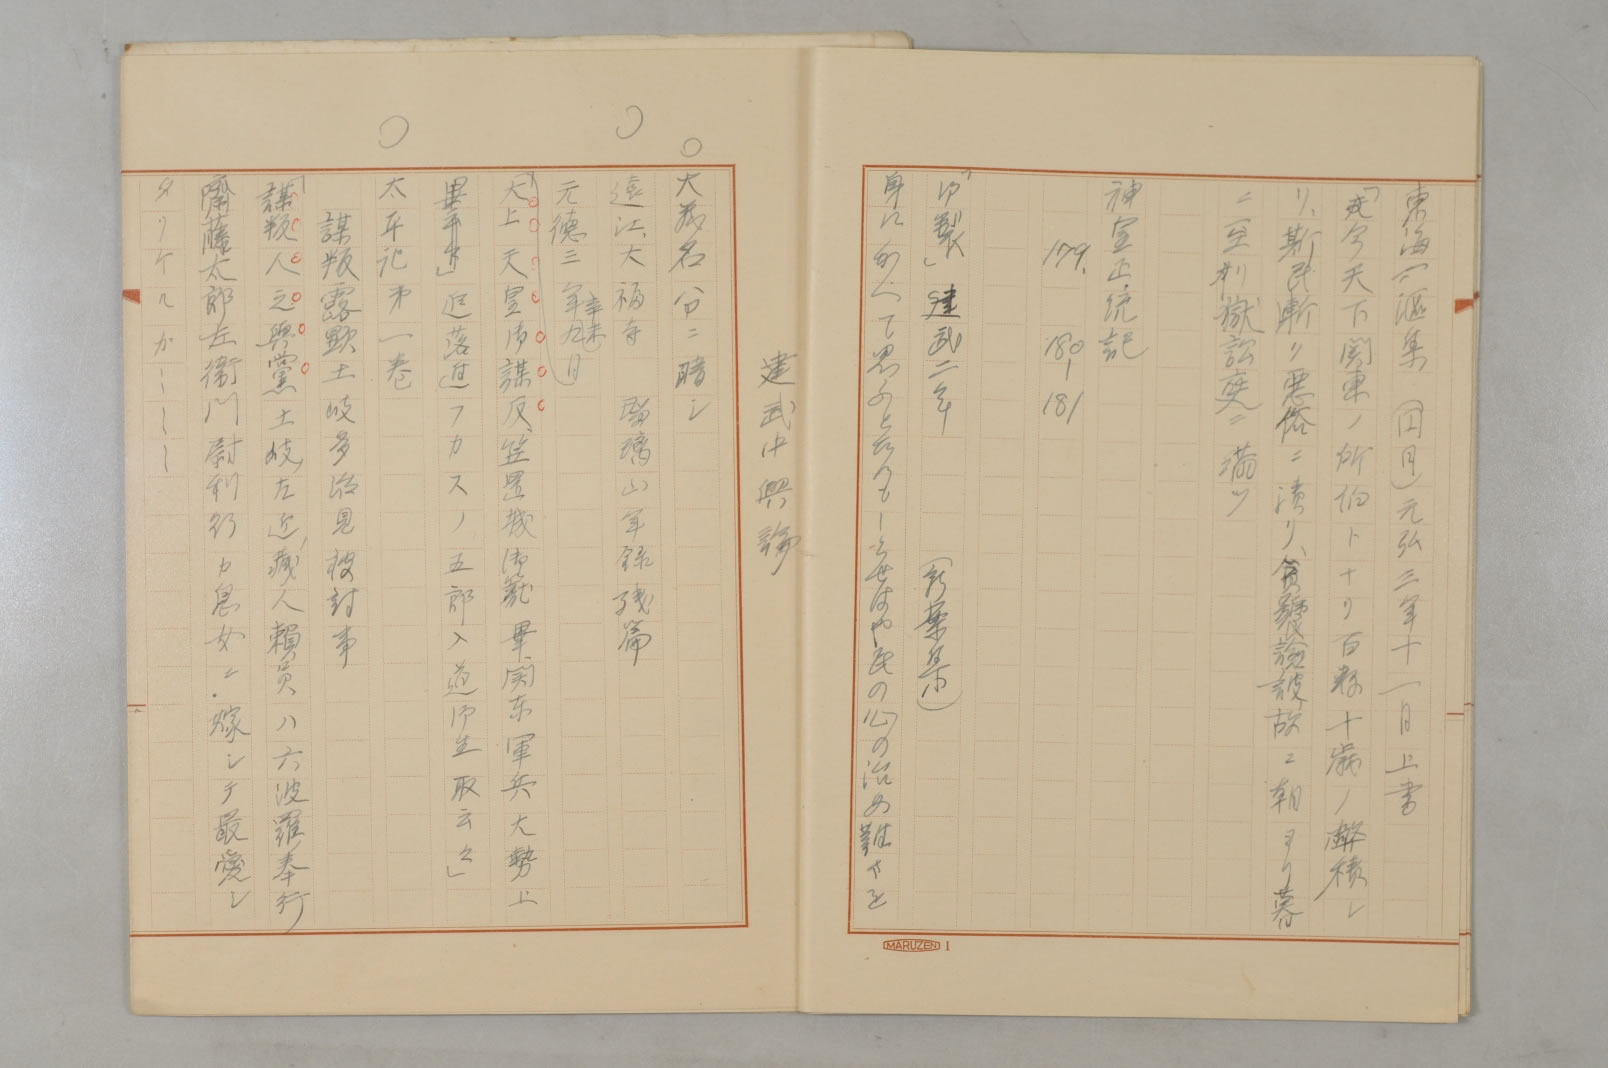 東海一漚集 (円月) 元弘三年十一月上書
「夫今天下関東ノ所伯トナリ百数十歳ノ弊積レ
リ、斯民漸リ悪俗ニ漬リ、貪饕諭詖故ニ朝ヨリ暮
ニ至リ獄訟庭ニ満ツ
神皇正統記
179. 180-181
「御製」建武二年 (新葉集)
身にかへて思ふとたにもしらせはや民の心の治め難きを
建武中興論
大義名分ニ暗シ
遠江、大福寺 瑠璃山年録残篇
元徳三年辛未九月
「大上天皇御謀反、笠置城御籠畢、関东軍兵大勢上
畢
迯落迯フカスノ五郎入道御生取云々」
太平記第一巻
謀叛露顕土岐多治見被討事
「謀叛人之與黨土岐左近蔵人頼員ハ六波羅奉行
齋藤太郎左衛門尉利行カ息女ニ嫁シテ最愛シ
タリケルカーーー
MARUZEN 1